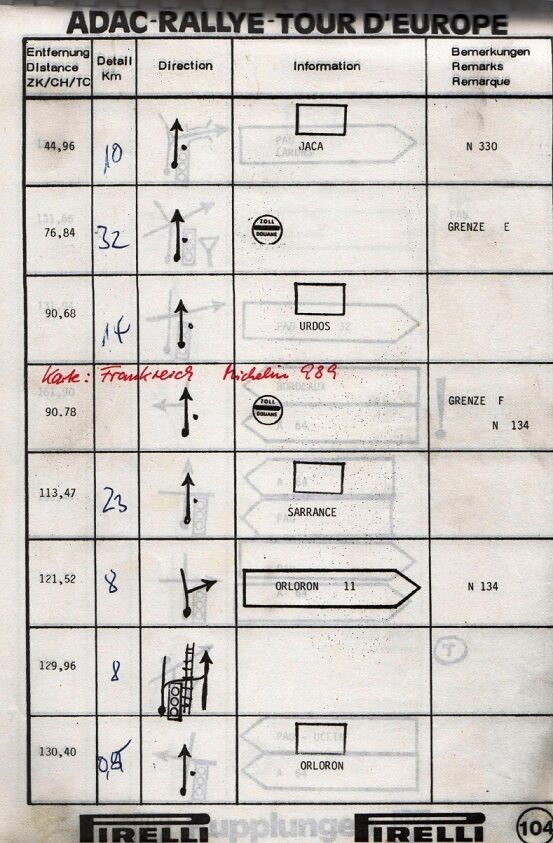 ADAC-RALLYE-TOUR D'EUROPE
Entfernung Distance ZK/CH/TC
Detail Km
Direction
Information
Bemerkungen Remarks Remarque
44,96 10 JACA N 330
76,84 32 ZOLL DOUANE GRENZE E
90,68 14 URDOS
Karte: Frankreich Michelin 989
90.78 ZOLL DOUANE GRENZE F
N 134
113,47 23 SARRANCE
121,52 8 ORLORON 11 N 134
129,96 8
130,40 0,5 ORLORON
PIRELLI PIRELLI 104